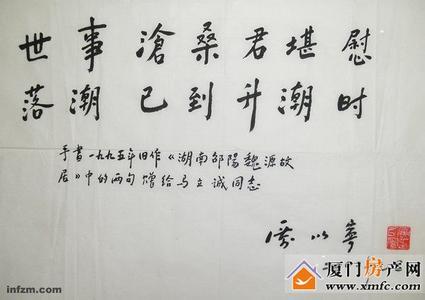 世事滄桑君堪慰
落潮已到升潮时
手書一九九五年旧作《湖南邵陽魏源故
居》中的两句 赠给马立诚同志
以寧
infzm.com
厦门房产网
www.xmfc.com